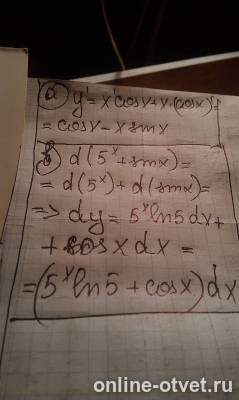 а) y' = x'cosx + x·(cosx)' =
= cosx - x sinx
б) d(5ˣ + sinx) =
= d(5ˣ) + d(sinx) =
=> dy = 5ˣ ln5 dx +
+ cosx dx =
= (5ˣ ln5 + cosx) dx
online-otvet.ru